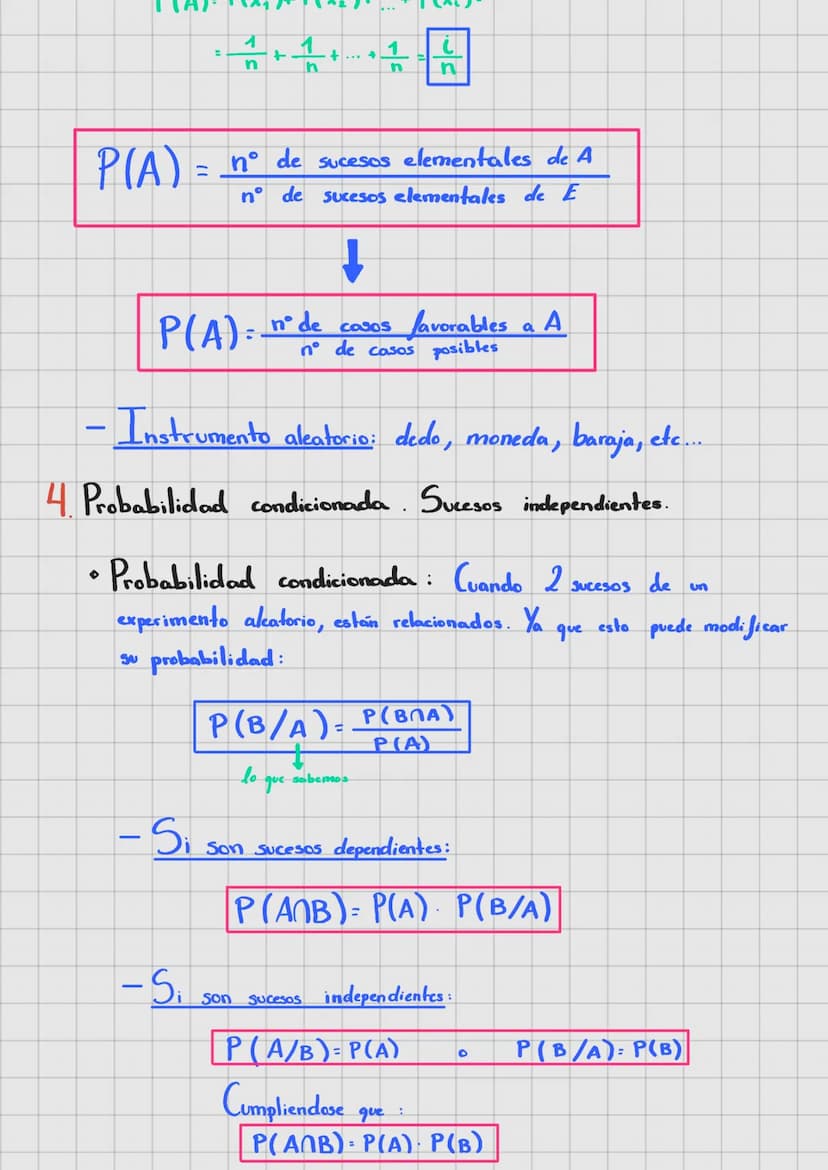 = 1/n + 1/n + ... + 1/n = i/n
P(A) = nº de sucesos elementales de A / nº de sucesos elementales de E
P(A) = nº de casos favorables a A / nº de casos posibles
- Instrumento aleatorio: dedo, moneda, baraja, etc...
4. Probabilidad condicionada. Sucesos independientes.
• Probabilidad condicionada: Cuando 2 sucesos de un
experimento aleatorio, están relacionados. Ya que esto puede modificar
su probabilidad:
P(B/A) = P(B∩A) / P(A)
lo que sabemos
- Si son sucesos dependientes:
P(A∩B) = P(A) · P(B/A)
- Si son sucesos independientes:
P(A/B) = P(A) o P(B/A) = P(B)
Cumpliendose que :
P(A∩B) = P(A) · P(B)